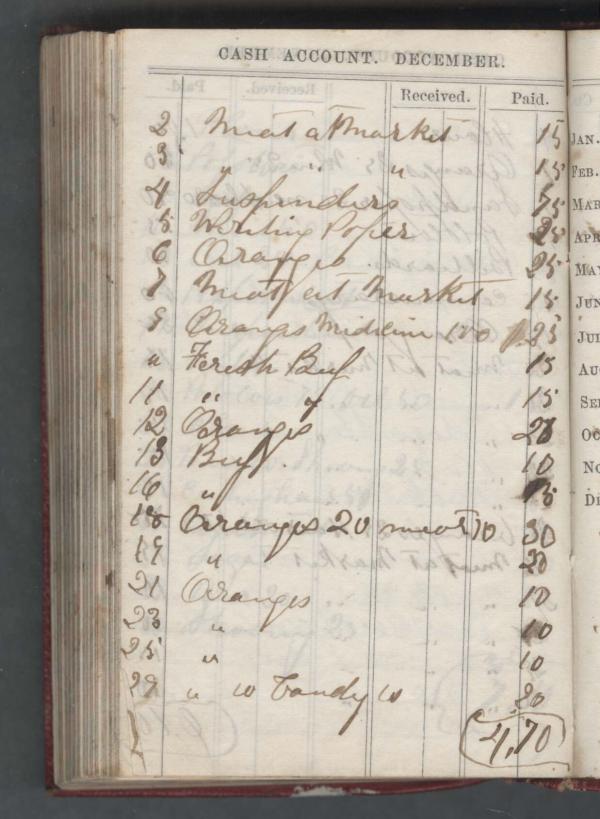 CASH ACCOUNT. DECEMBER.
Received. Paid.
2 Meat at Market 15
3 " " " 15
4 Suspenders 75
5 Writing Paper 25
6 Oranges 25
7 Meat at Market 15
9 Oranges 25
" Fresh Beef 15
11 " " 15
12 Oranges
13 Beef 10
16 " 15
18 Oranges 20 meat 10 30
19 " 20
21 Oranges 10
23 " 10
25 " 10
29 " 10 Candy 10 20
4,70
JAN.
FEB.
MAR
APR
MAY
JUN
JUL
AU
SE
OC
No
DE